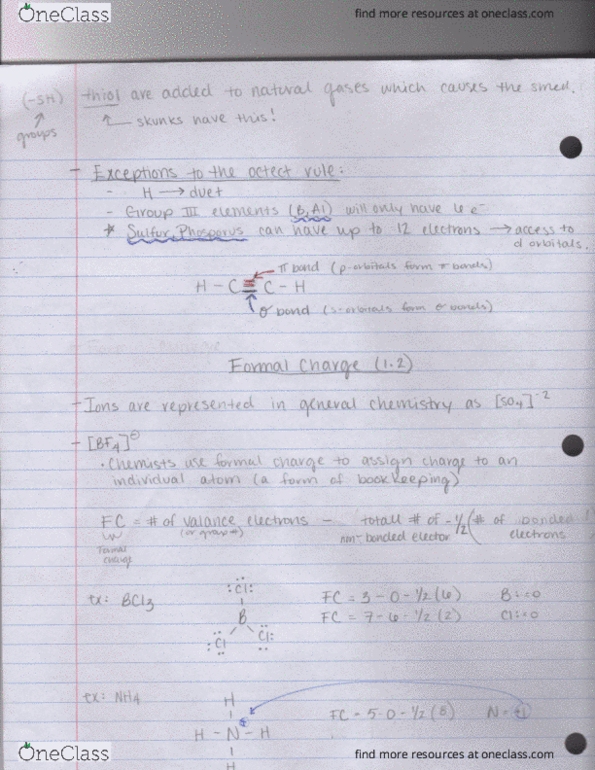 OneClass
find more resources at oneclass.com
(-SH) thiol are added to natural gases which causes the smell.
groups
skunks have this!
- Exceptions to the octect rule:
- H → duet
- Group III elements (B, Al) will only have 6 e⁻
* Sulfur, Phosporus can have up to 12 electrons → access to
d orbitals.
π bond (p-orbitals form π bonds)
H - C ≡ C - H
σ bond (s-orbitals form σ bonds)
Formal Charge (1.2)
- Ions are represented in general chemistry as [SO₄]⁻²
- [BF₄]⊖
• Chemists use formal charge to assign charge to an
individual atom (a form of bookkeeping)
FC = # of valance electrons - totall # of - 1/2 (# of bonded
(or group #) non-bonded elector electrons
Formal
charge
ex: BCl₃
:Cl:
B
:Cl Cl:
FC = 3 - 0 - 1/2 (6) B = 0
FC = 7 - 6 - 1/2 (2) Cl = 0
ex: NH₄
H
H - N - H
H
⊕
FC = 5 - 0 - 1/2 (8) N = +1
OneClass
find more resources at oneclass.com